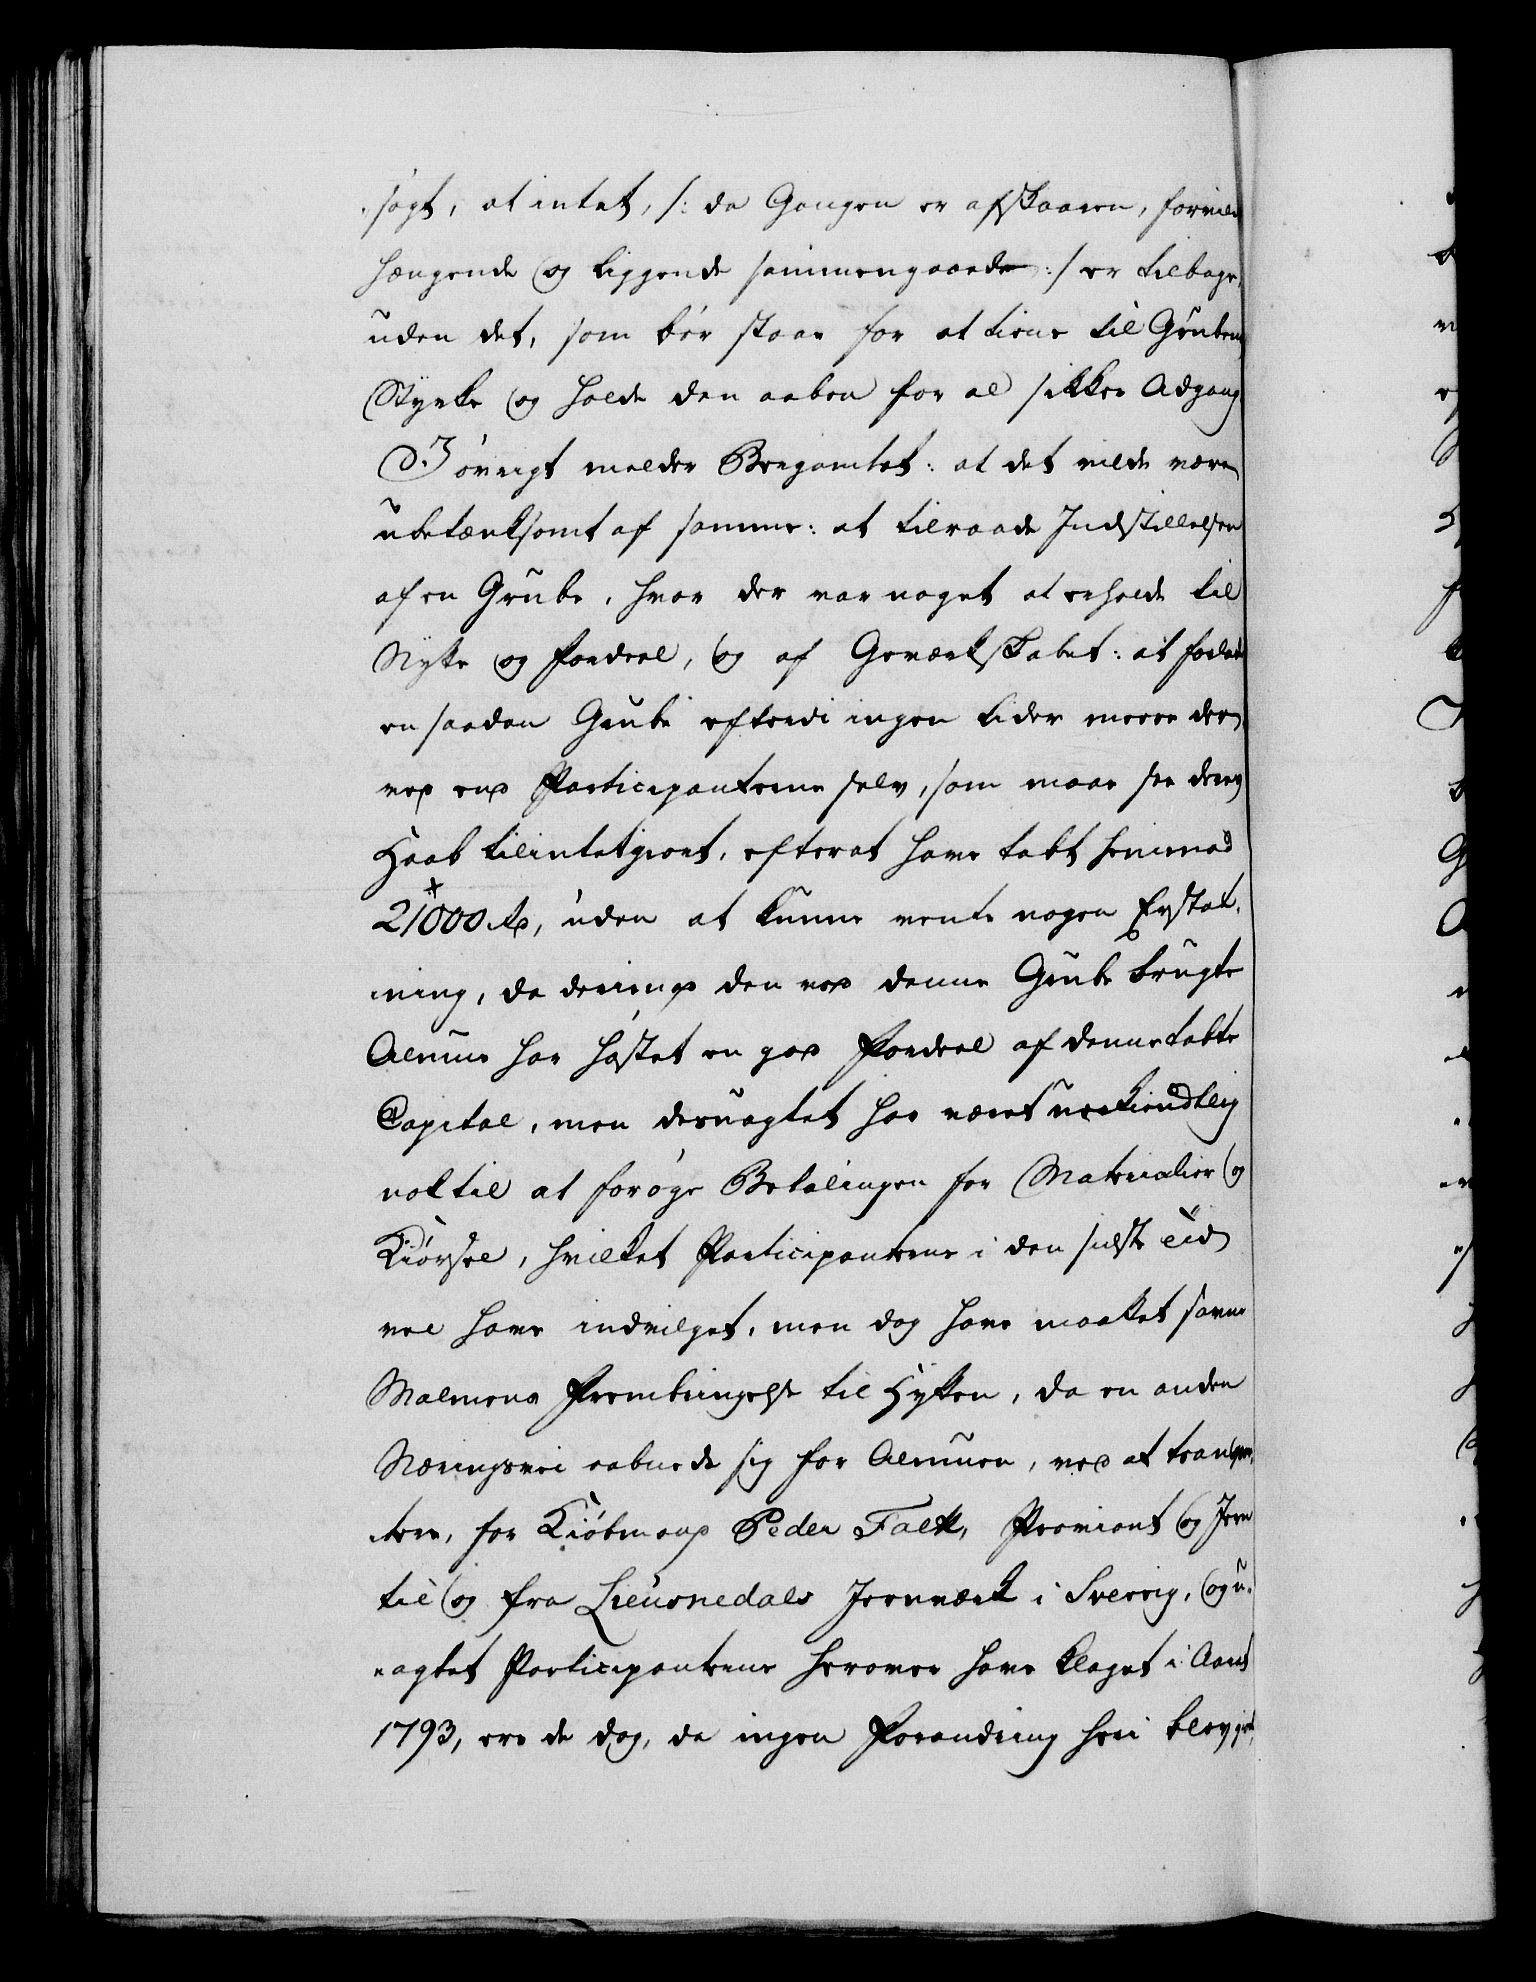 sagt, at intet, /: da Gangen er afskaaren, formed
hængende og liggende sammengaaede :/ er tilbage,
uden det, som bør staae for at tiene til Grubens
Styrke og holde den aaben for al sikker Adgang
I øvrigt melder Bergamtet: at det vilde være
ubetænksomt af samme: at tilraade Indstillelsen
af en Grube, hvor der var noget at erholde til
Nytte og Fordeel, og af Geværkskabet: at forlade
en saadan Grube efterdi ingen lider meere der,
ved end Participanterne selv, som maae see deres
Haab tilintetgiort, efterat have tabt henimod
21000 rd, uden at kunne vente nogen Erstat,
ning, da derimod den ved denne Grube brugte
Almue har høstet en god Fordeel af denne tabte
Capital, men desuagtet har været uerkiendtlig
nok til at forøge Betalingen for Materialier og
Kiørsel, hvilket Participanterne i den sidste Tid
vel have indvilget, men dog have maattet savne
Malmens Frembringelse til Hytten, da en anden
Næringsvei aabnede sig for Almuen, ved at transpor,
tere, for Kiøbmand Peder Falk, Proviant og Jern
til og fra Lieusnedals Jernværk i Sverrig, og u,
agtet Participanterne herover have klaget i Aaret
1793, ere de dog, da ingen Forandring heri blev giort,